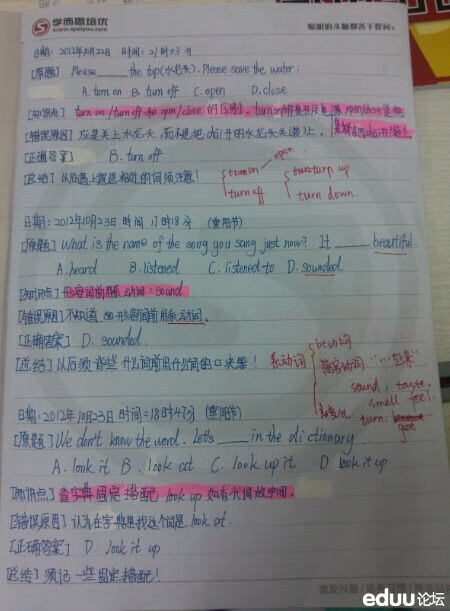 学而思培优
www.speiyou.com
聪明的头脑都善于提问。
日期：2012年10月22日 时间：21时03分
[原题] Please ____ the top(水龙头). Please save the water.
A. turn on B. turn off C. open D. close
[知识点] turn on/turn off 和 open/close 的区别。
[错误原因] 应是关上水龙头，而不是把
[正确答案] B. turn off
[总结] 以后遇上意思相近的词须注意！
turn on open
turn off
turn up
turn down
日期：2012年10月23日 时间 (重阳节)
[原题] What is the name of the song you sang just now? It ____ beautiful.
A. heard B. listened C. listened to D. sounded
[知识点] 形容词前用系动词：sound
[错误原因] 不知道 形容词前用系动词。
[正确答案] D. sounded
[总结] 以后须背些什么词前用什么词的口决！
系动词
be动词
感官动词 "…起来"
sound, taste,
smell feel.
turn,
get
日期：2012年10月23日 时间=18时47分 (重阳节)
[原题] We don't know the word. Let's ____ in the dictionary
A. look it B. look at C. look up it D look it up
[知识点] 查字典固定搭配 look up 如有代词放中间。
[错误原因] 认为在字典里找这个词是 look at.
[正确答案] D. look it up
[总结] 须记一些固定搭配！
eduu论坛